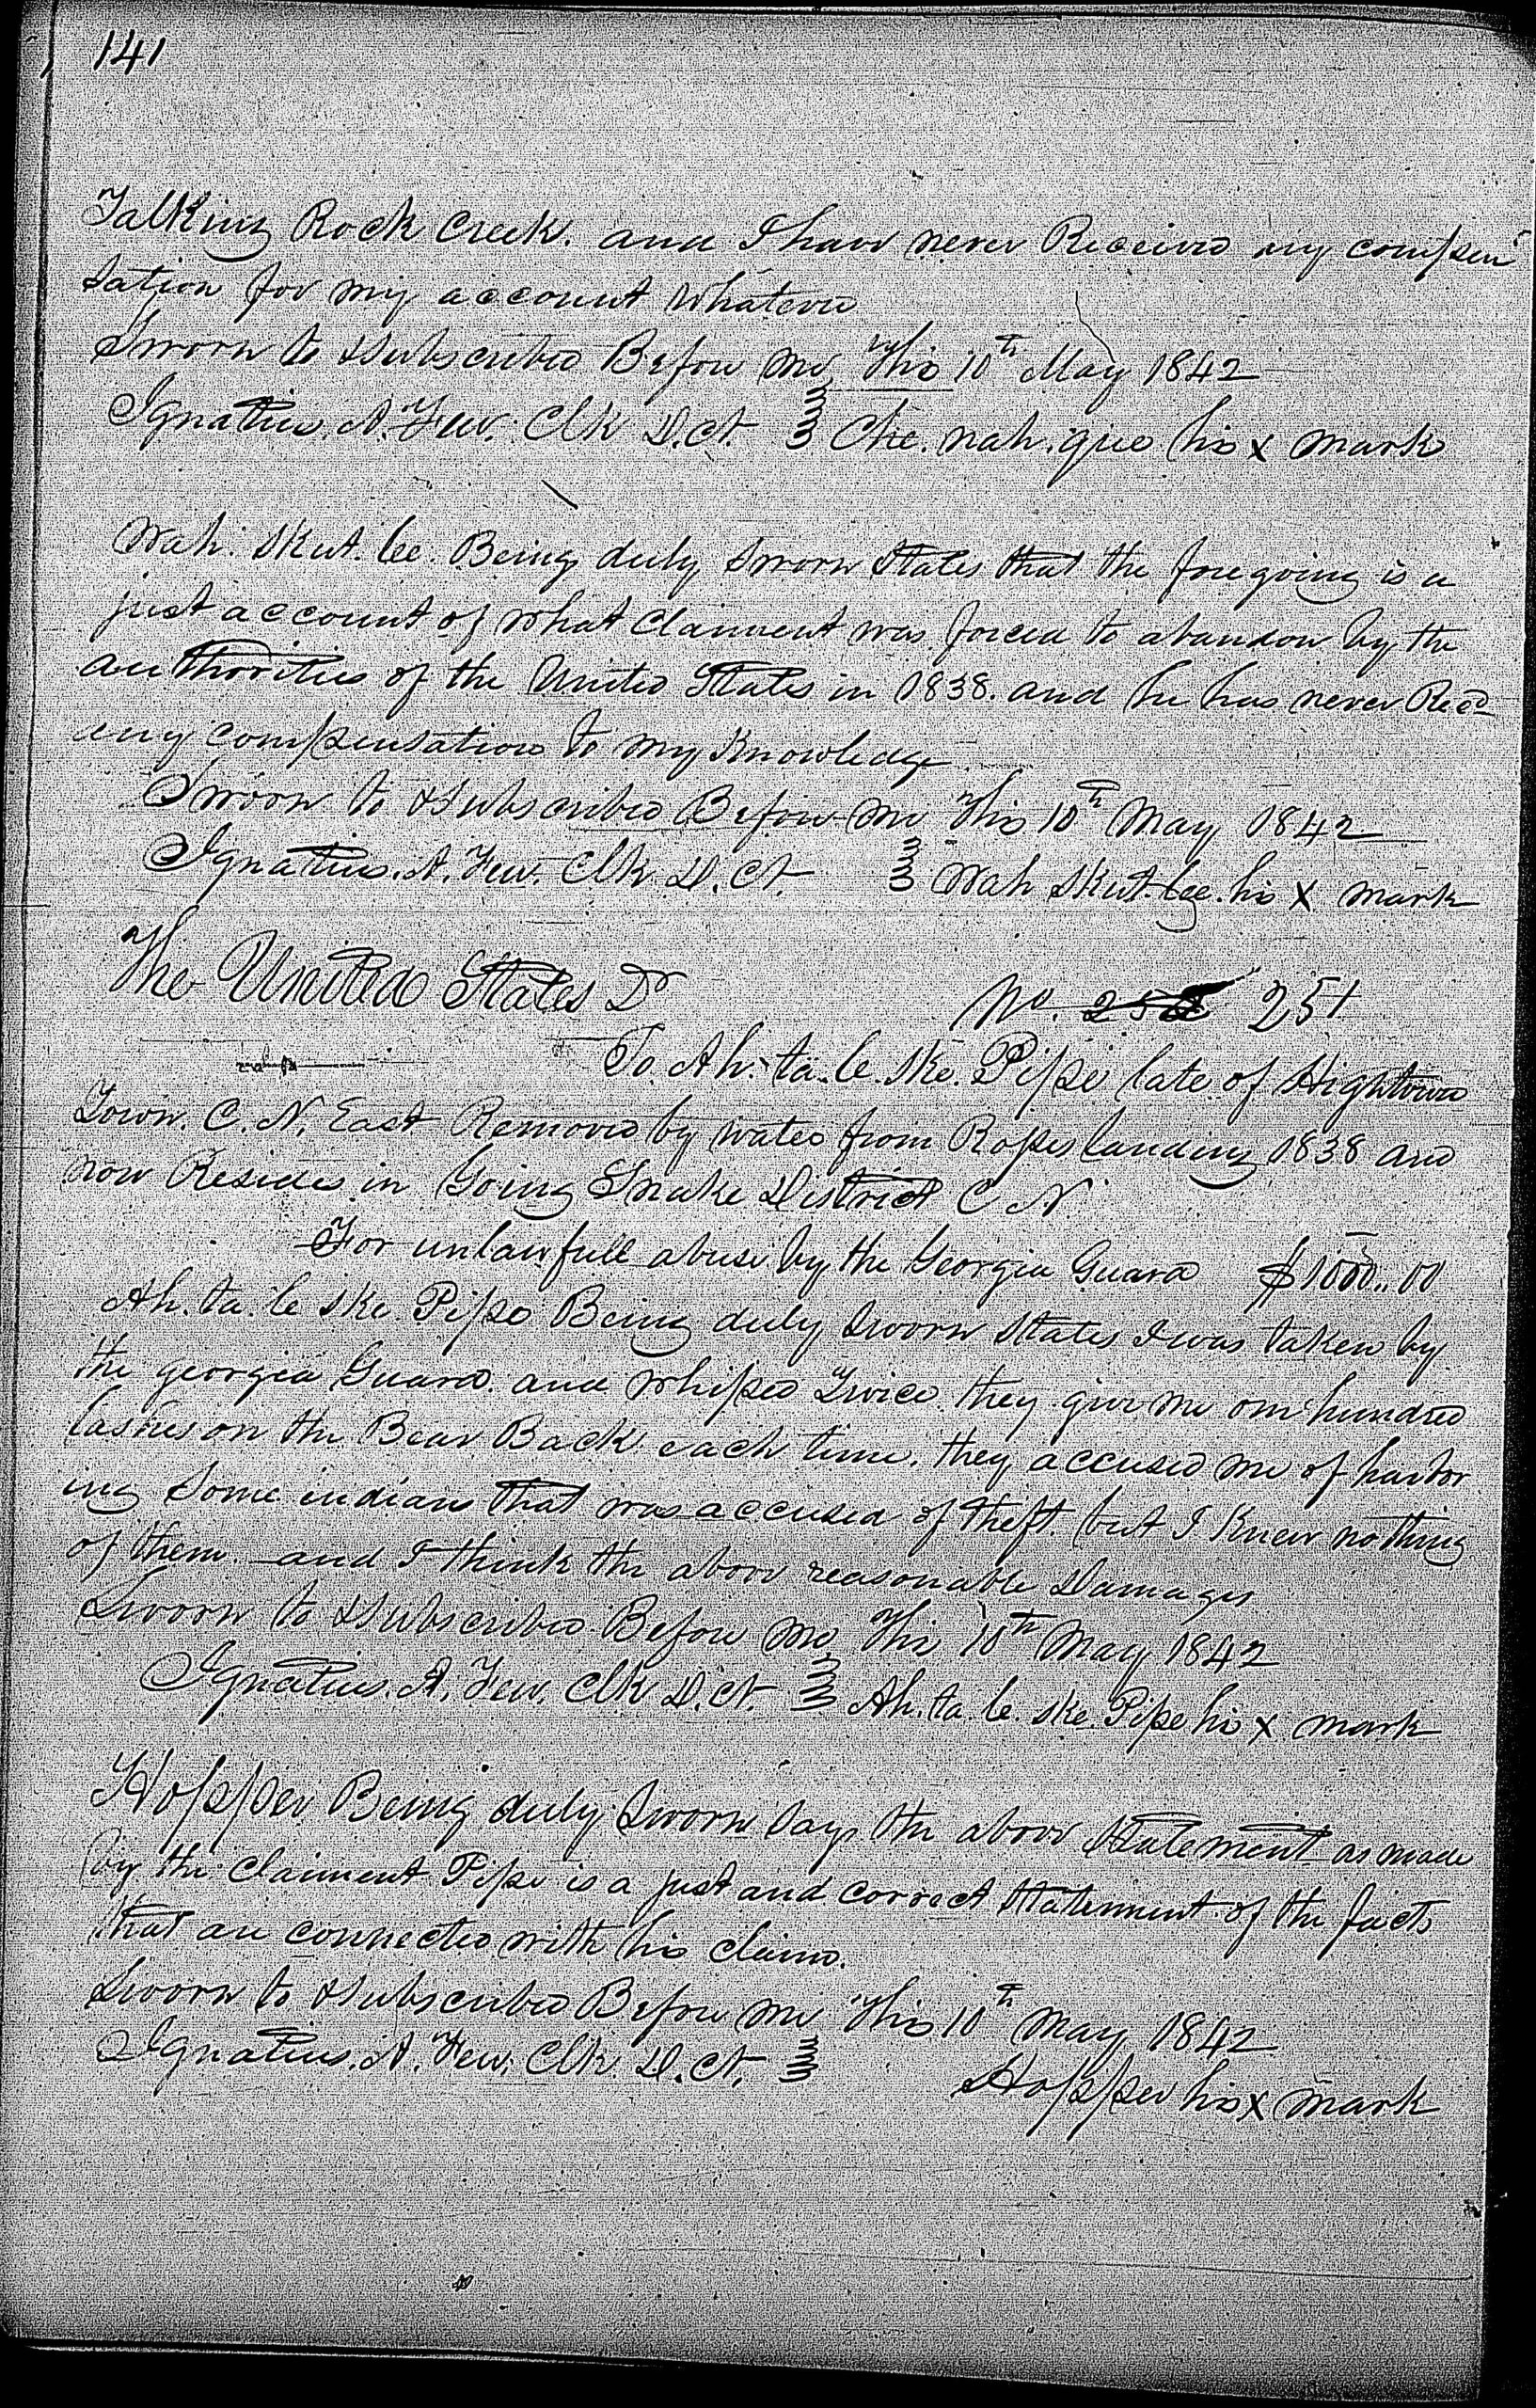 141
Talking Rock Creek. and I have never Received any compen
sation for my account whatever
Sworn to & Subscribed Before me This 10th May 1842
Ignatius. A. Few. Clk D. Ct. } Che. nah. que his x mark
Wah. Skut. lee. Being duly Sworn States that the foregoing is a
just account of what Claiment was forced to abandon by the
authorities of the United States in 1838. and he has never Recd
any compensation to my Knowledge
Sworn to & Subscribed Before me This 10th May 1842
Ignatius. A. Few. Clk D. Ct. } Wah Skut. lee. his X mark
The United States Dr
No. 251
To Ah. ta. le. ske. Pipe late of Hightown
Town. C. N. East Removed by water from Rosses landing 1838 and
now Resides in Going Snake District C N
For unlawfull abuse by the Georgia Guard $1000..00
Ah. ta. le ske. Pipe Being duly Sworn States I was taken by
the georgia Guard. and whiped Twice. they give me one hundred
lashes on the Bear Back each time. they accused me of harbor
ing Some indians that was accused of theft. but I Knew nothing
of them. and I think the above reasonable Damages
Sworn to & Subscribed Before me This 10th May 1842
Ignatius. A. Few. Clk D. Ct. } Ah. ta. le. ske. Pipe his x mark
Hopper Being duly Sworn Says the above Statement as made
by the Claiment Pipe is a just and correct Statement of the facts
that are connected with his claim.
Sworn to & Subscribed Before me This 10th May 1842
Ignatius. A. Few. Clk. D. Ct. }
Hopper his x mark